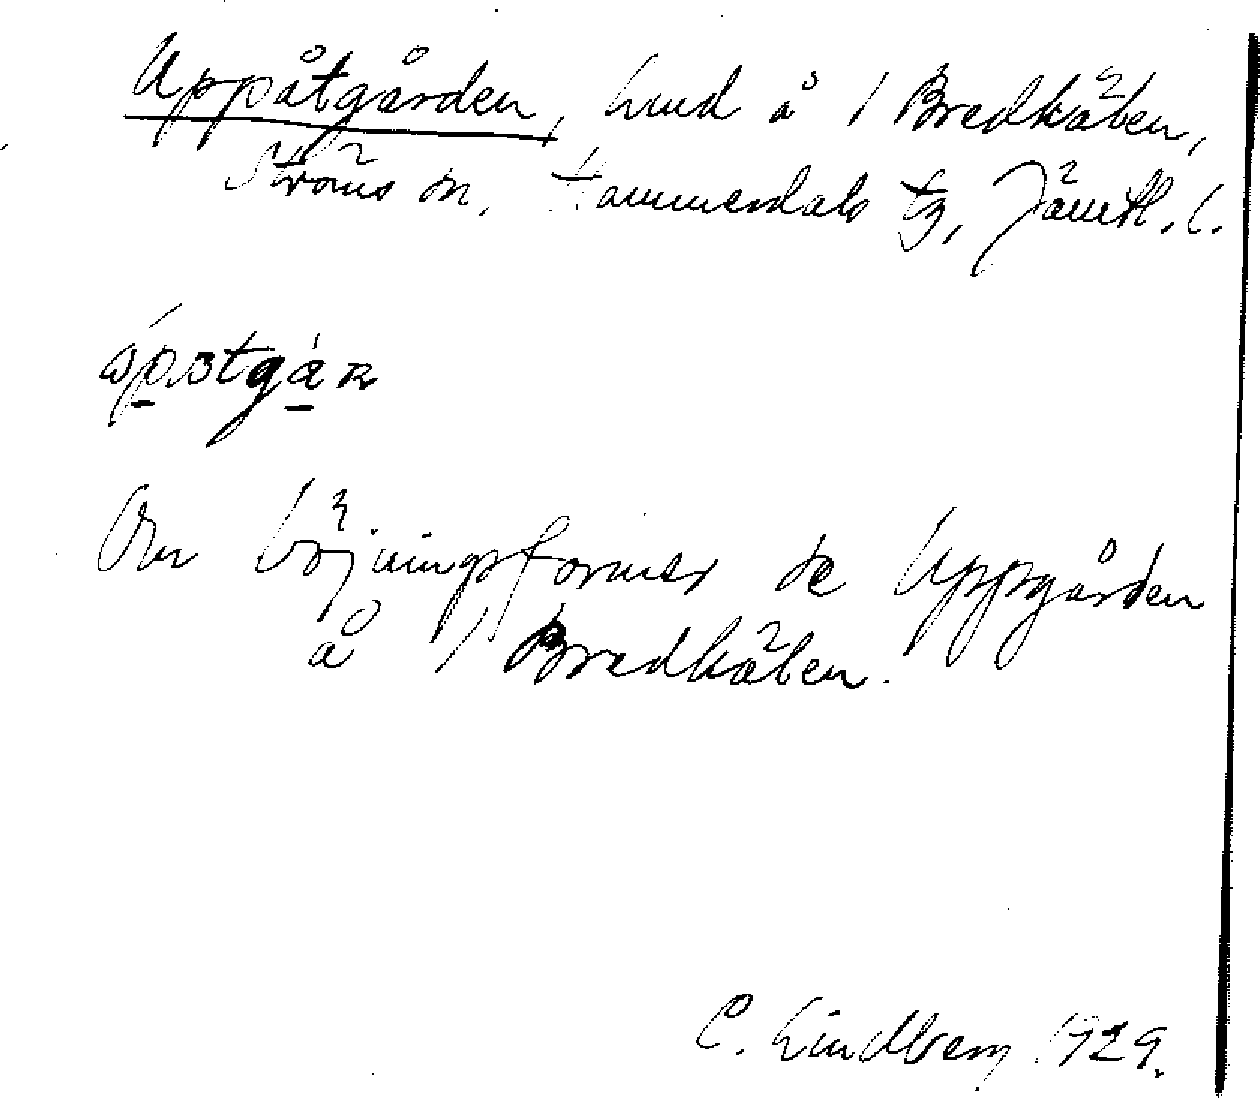 Uppåtgården, hmd å 1 Bredkälen,
Ströms sn, Hammerdals tg, Jämtl. l.
Om böjningsformer se Uppgården
å 1 Bredkälen.
C. Lindberg 1929.